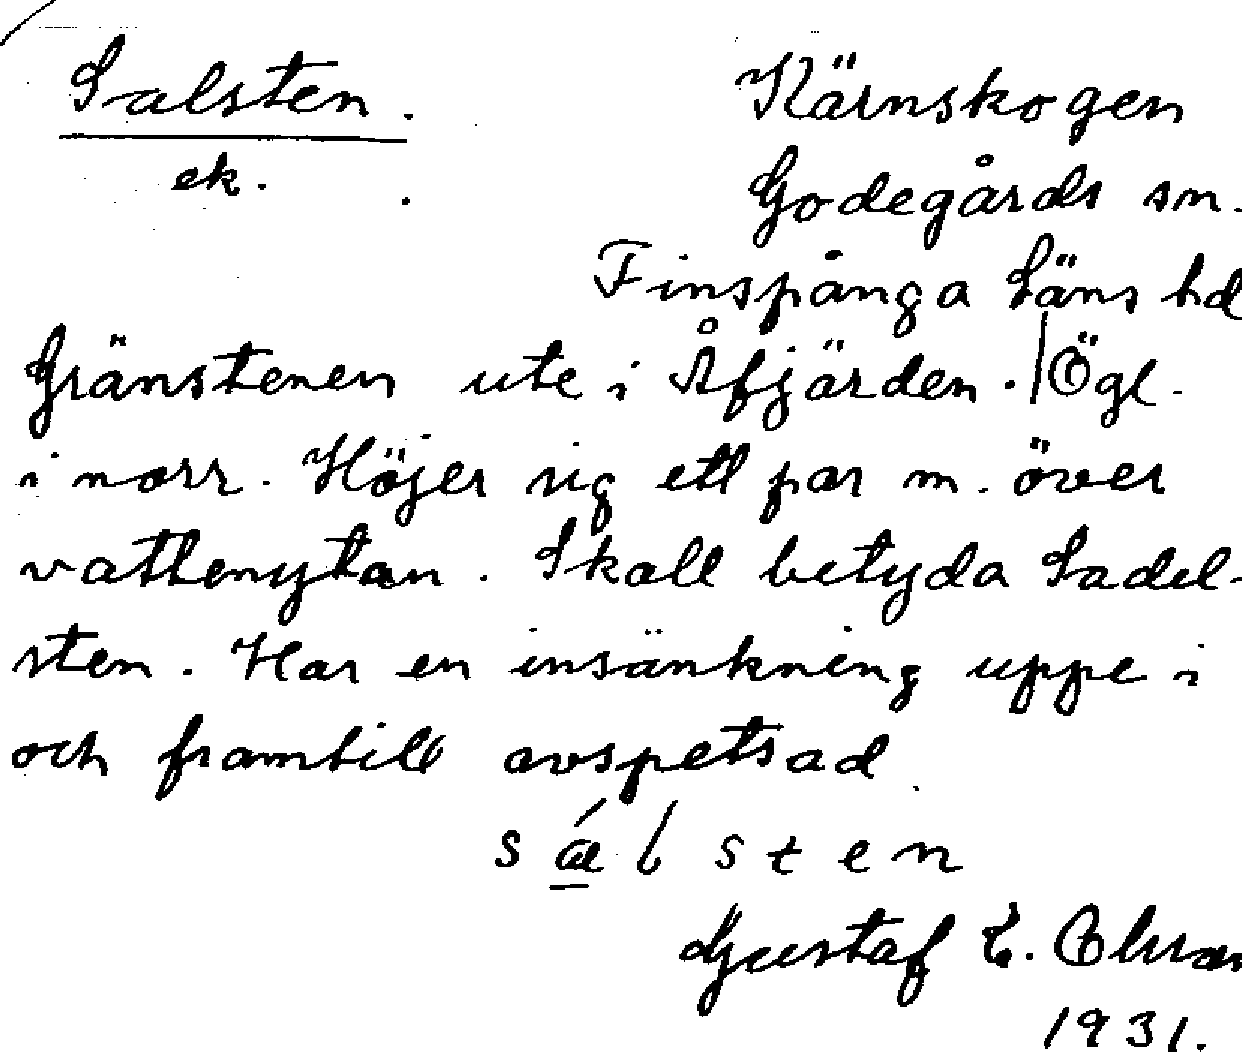 Salsten.
ek.
Kärnskogen
Godegårds sn.
Finspånga Läns hd
Gränstenen ute i Åfjärden. Ögl.
i norr. Höjer sig ett par m. över
vattenytan. Skall betyda Sadel-
sten. Har en insänkning uppe i
och framtill avspetsad
sálsten
Gustaf E.
1931.